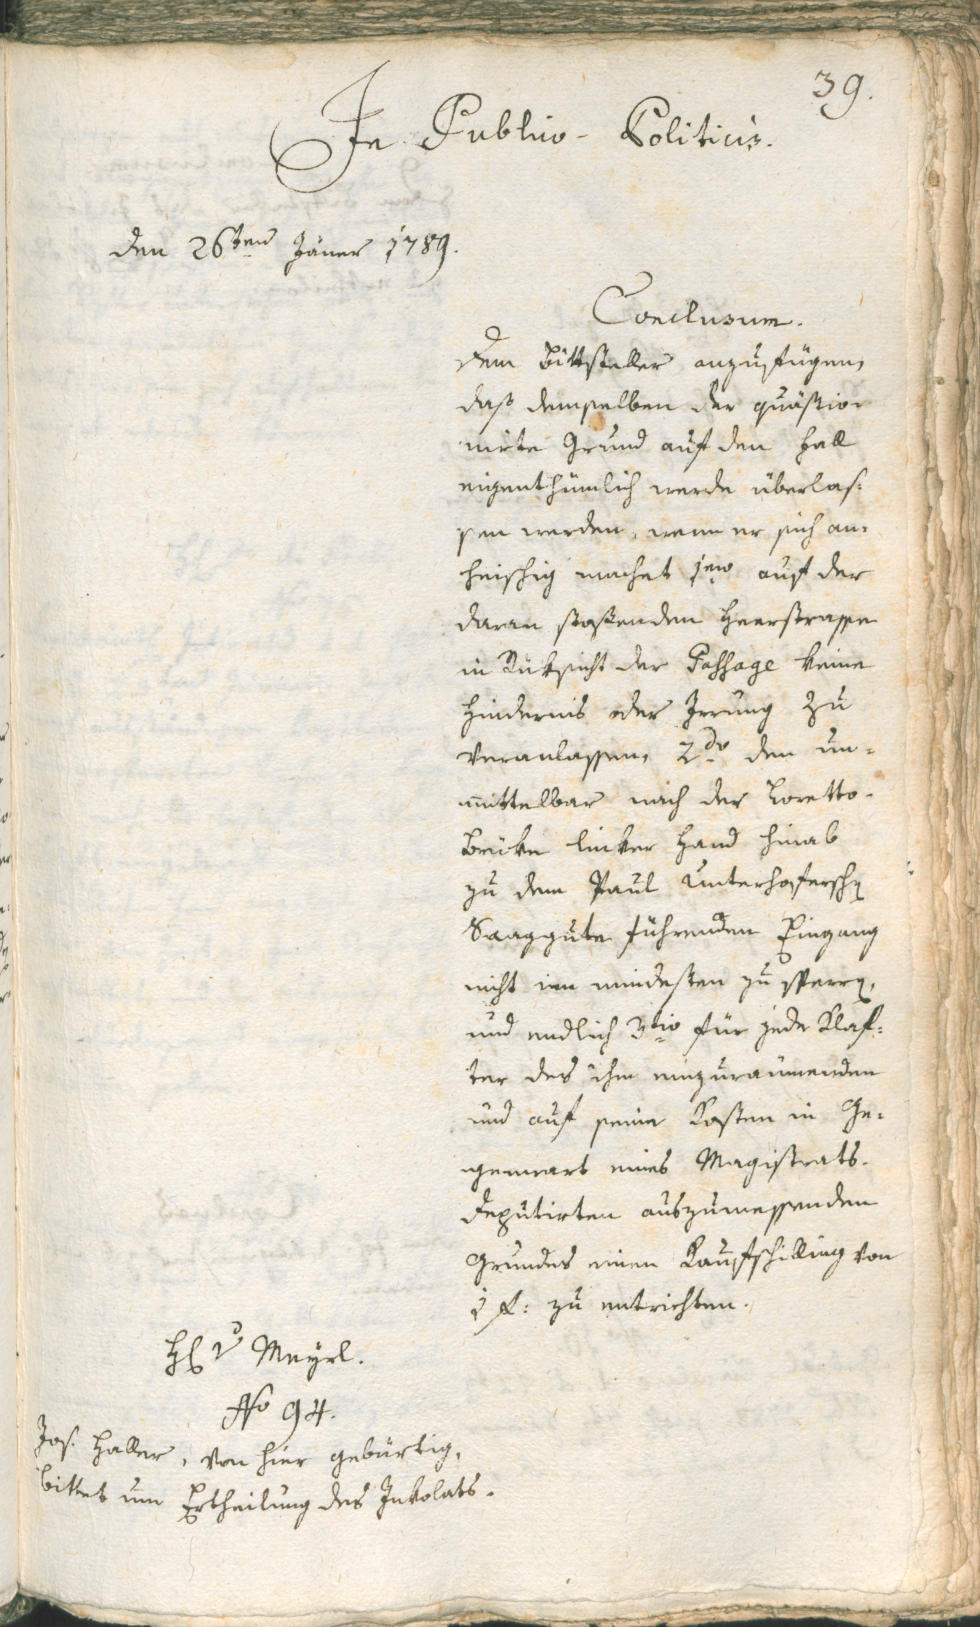 39.
In Publico-Politicis.
den 26ten Jäner 1789.
Conclusum.
dem Bittsteller anzufügen,
daß demselben der quästio-
nirte Grund auf den Fall
eigenthümlich werde überlas-
sen werden, wenn er sich an-
heischig machet 1mo auf der
daran stoßenden Heerstrasse
in Rüksicht der Passage keine
Hindernis oder Irrung zu
veranlassen, 2do den un-
mittelbar nach der Loretto-
brücke linker Hand hinab
zu dem Paul Unterhofersch
Saaggute führenden Eingang
nicht im mindesten zu sperrn,
und endlich 3tio für jede Klaf-
ter des ihm einzuraumenden
und auf seine Kosten in Ge-
genwart eines Magistrats-
deputirten auszumessenden
Grundes einen Kaufschilling von
1 f: zu entrichten.
H v Meyrl.
No 94.
Jos. Haller, von hier gebürtig,
bittet um Ertheilung des Inkolats.